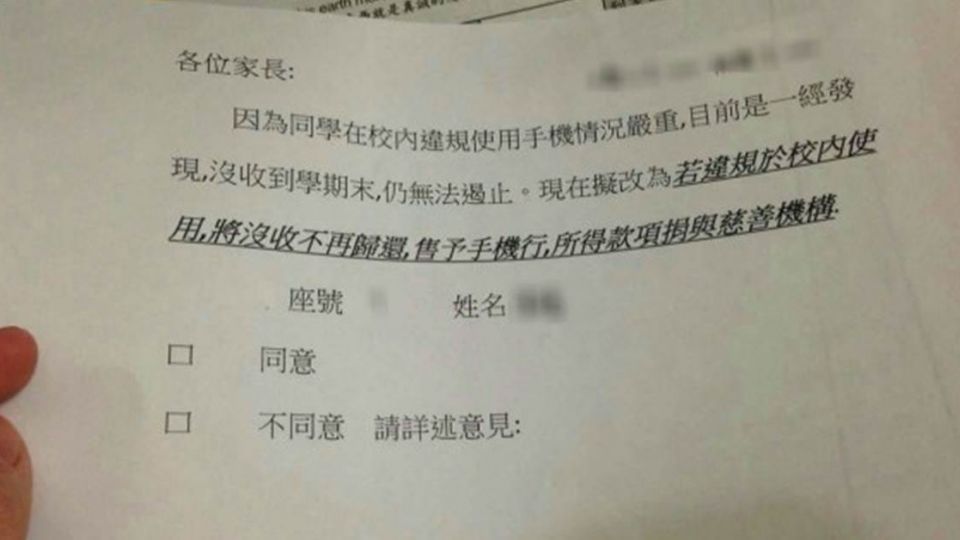 earth
各位家長:
因為同學在校內違規使用手機情況嚴重,目前是一經發
現,沒收到學期末,仍無法遏止。現在擬改為若違規於校內使
用,將沒收不再歸還,售予手機行,所得款項捐與慈善機構.
座號 姓名
□ 同意
□ 不同意 請詳述意見: